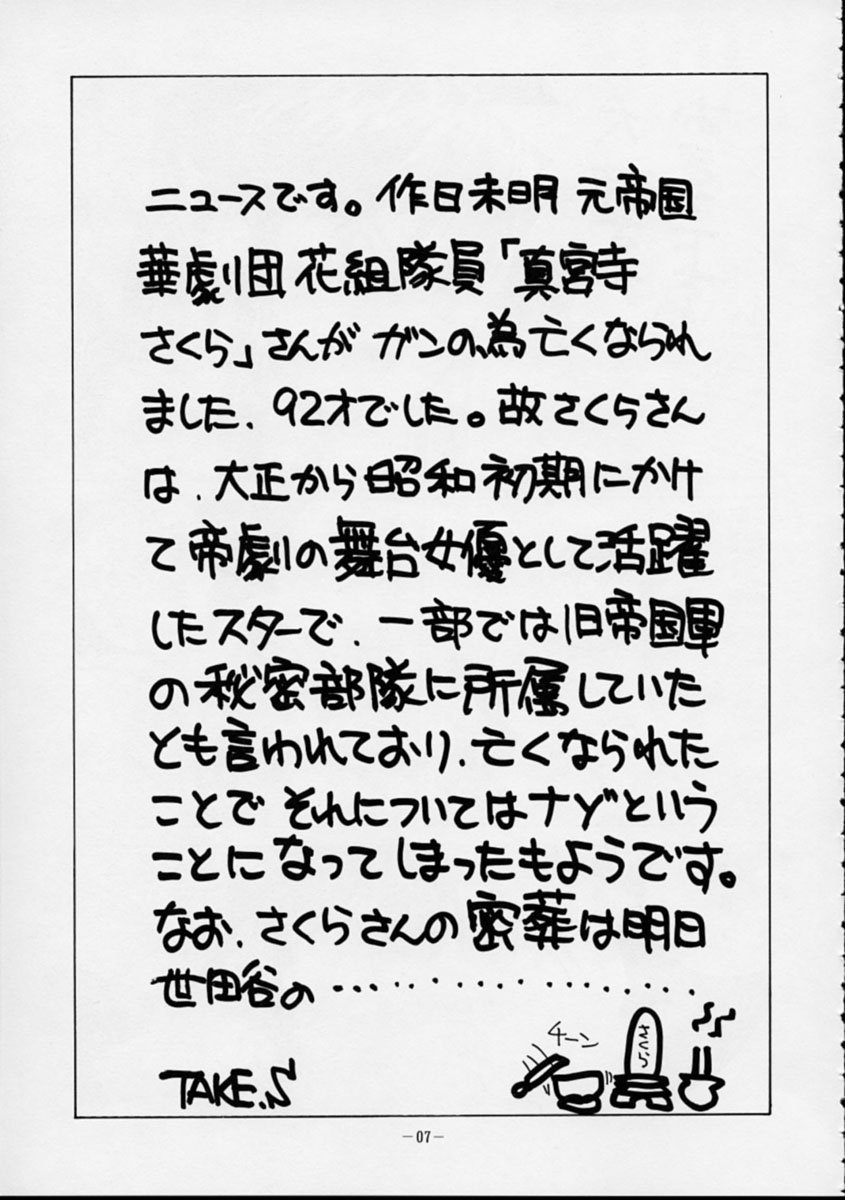 ニュースです。作日未明 元帝国
華劇団 花組隊員「真宮寺
さくら」さんが ガンの為亡くなられ
ました、92才でした。故さくらさん
は、大正から昭和初期にかけ
て帝劇の舞台女優として活躍
したスターで、一部では旧帝国軍
の秘密部隊に所属していた
とも言われており、亡くなられた
ことで それについてはナゾという
ことになってしまったもようです。
なお、さくらさんの密葬は明日
世田谷の………………
チーン
さくら
TAKE.S
-07-